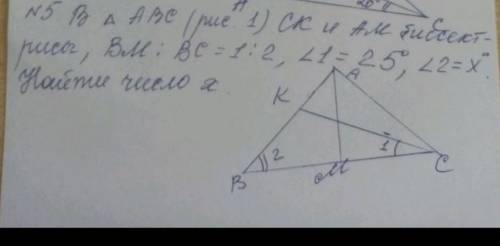 N5 В △ ABC (рис. 1) CK и AM биссект-
рисы, BM : BC = 1 : 2, ∠1 = 25°, ∠2 = X°
Найти число x.
A
K
2
1
B
M
C